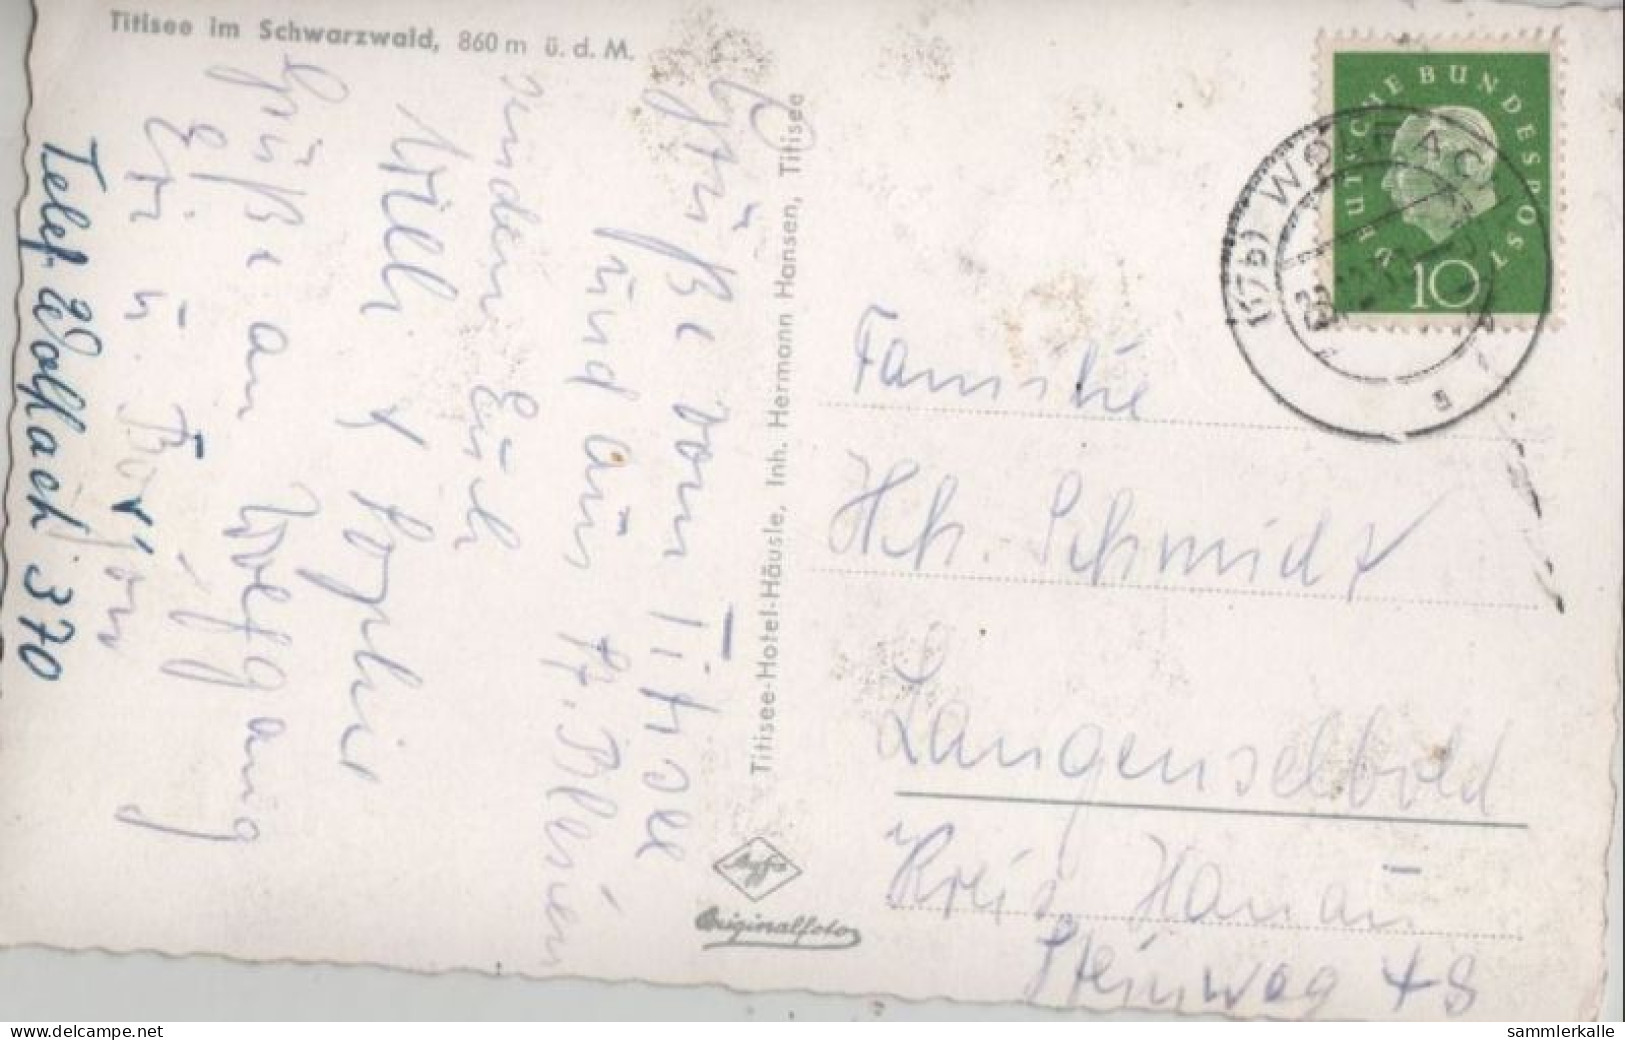 Titisee im Schwarzwald, 860 m ü. d. M.
Grüße vom Titisee
und aus St. Blasien
senden Euch
Willi & Sophie
Grüße an Wolfgang
u.
Telef. Wolfach 370
Titisee-Hotel-Häusle, Inh. Hermann Hansen, Titisee
Agfa
Originalfoto
DEUTSCHE BUNDESPOST
10
(17b) WOLFAC
Familie
Hch. Schmidt
Langenselbold
Kreis Hanau
Steinweg 48
www.delcampe.net
sammlerkalle